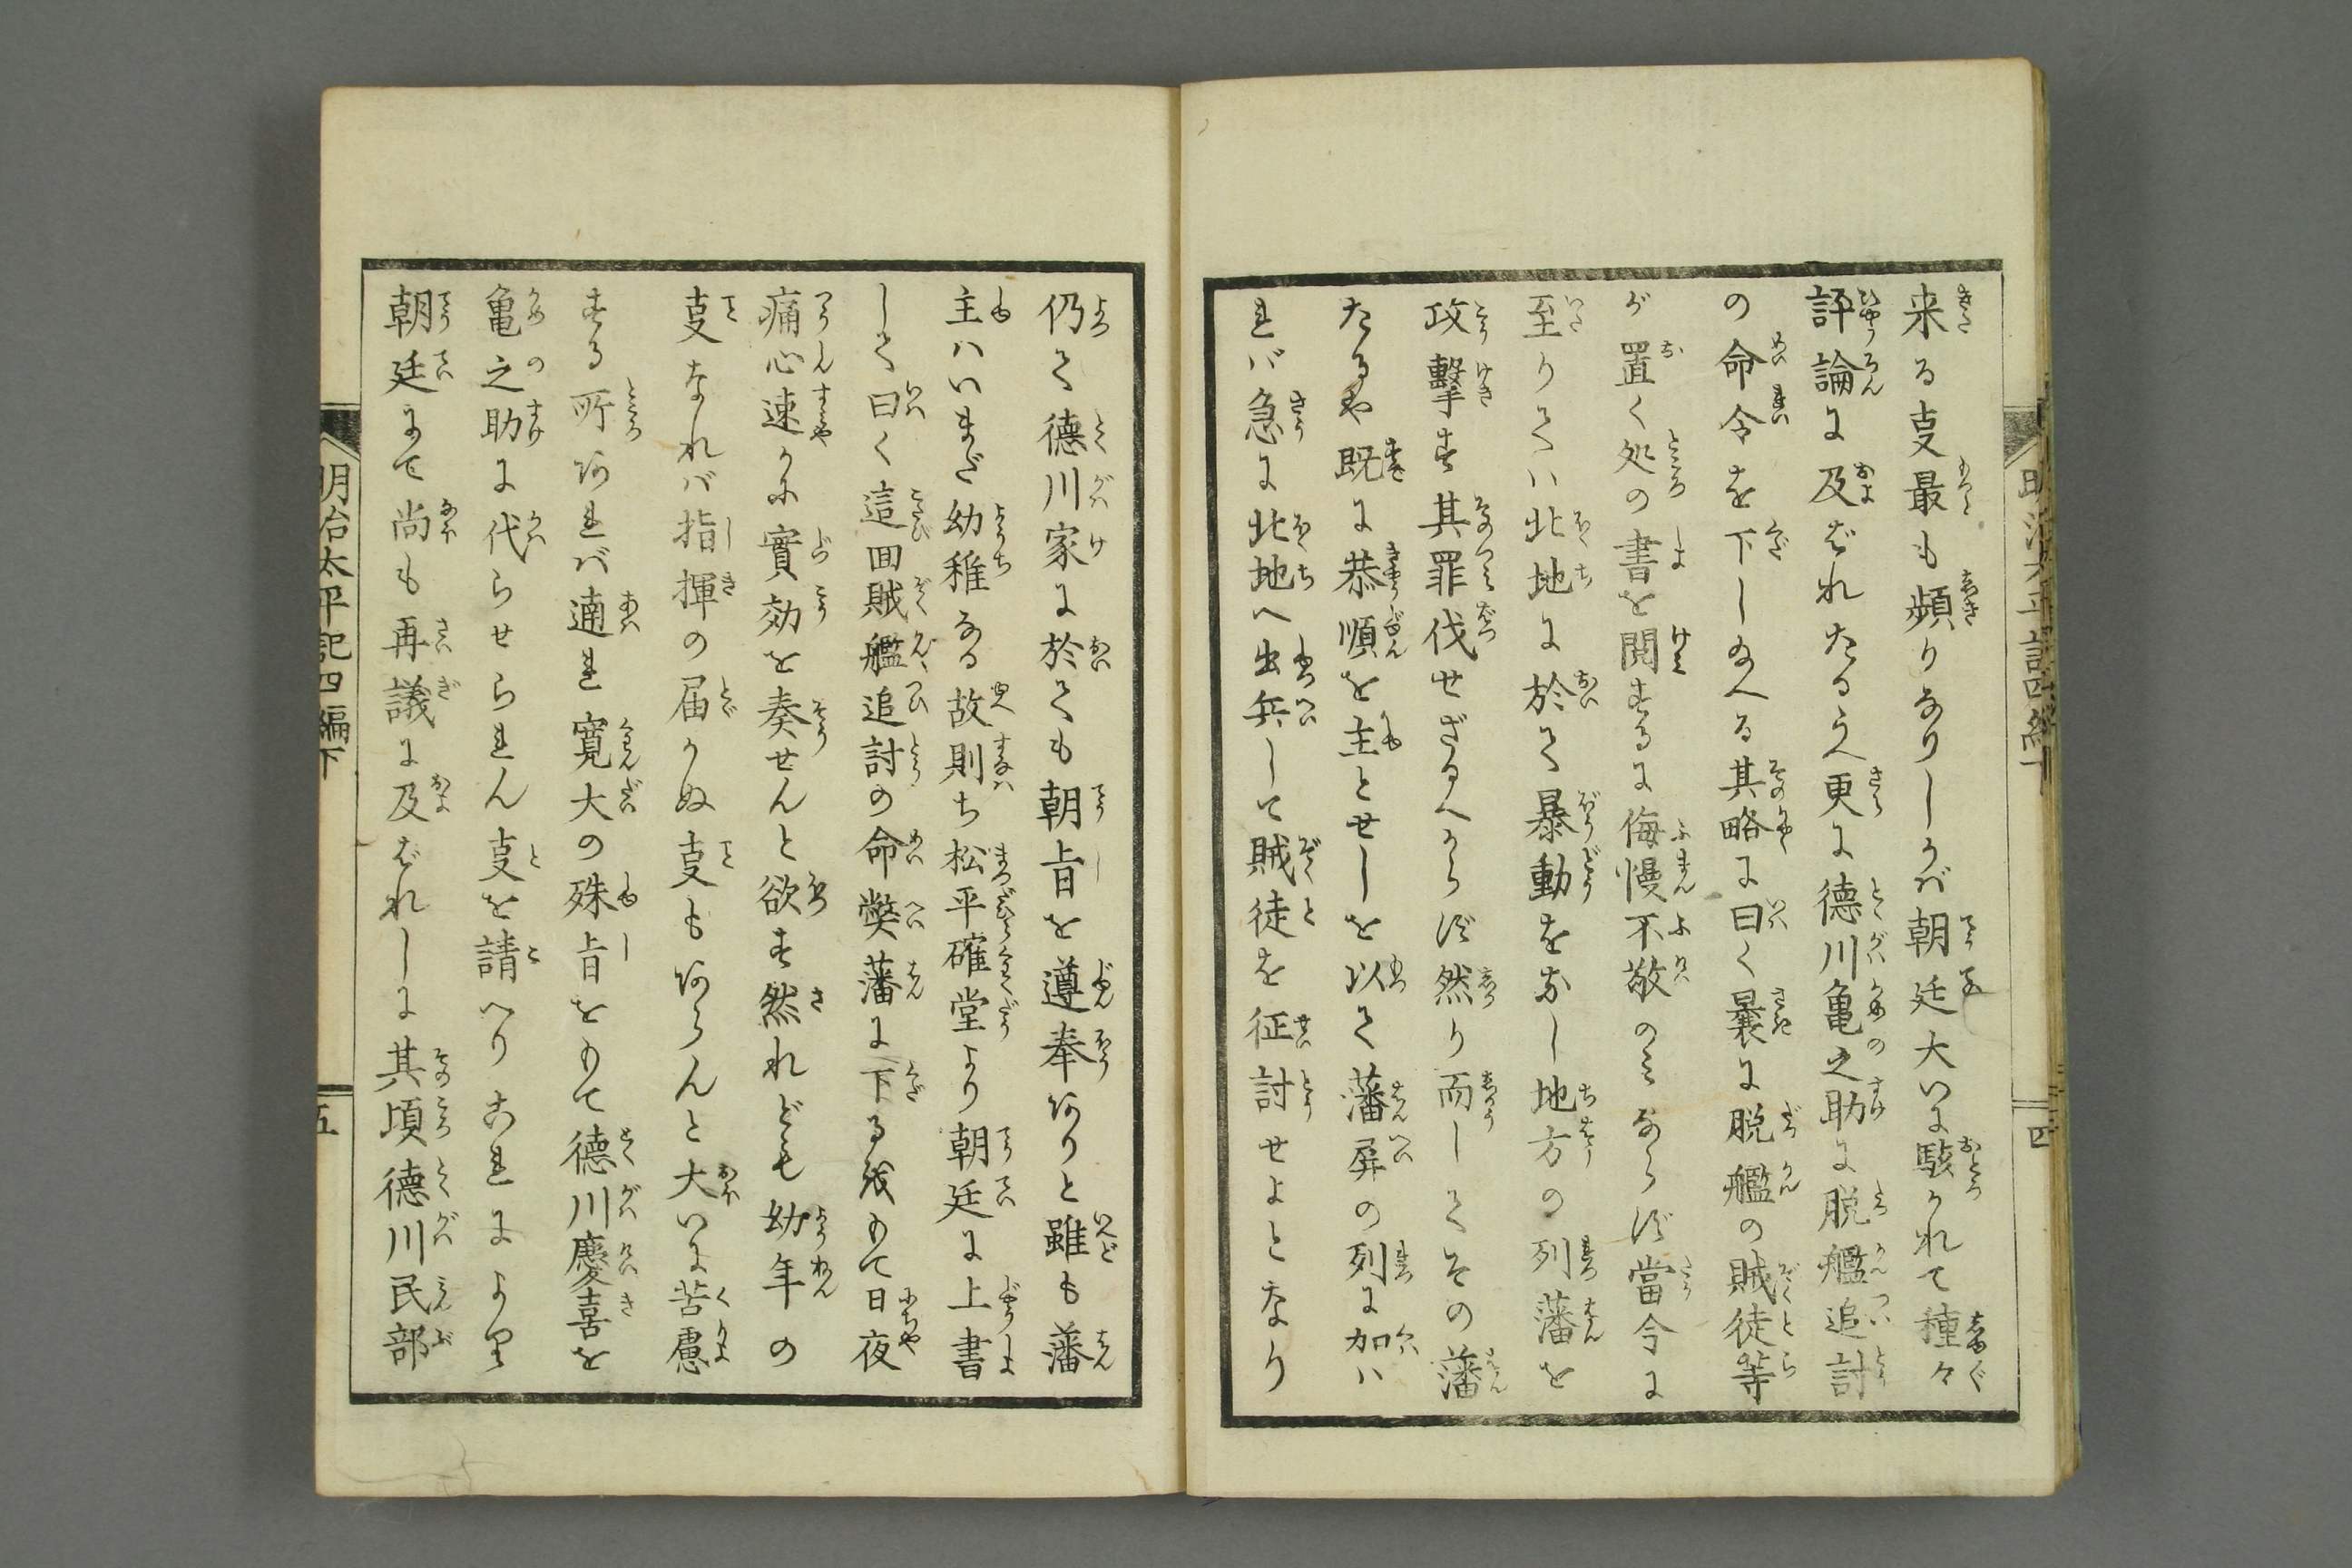 来る叓最も頻りなりしかバ朝廷大いに駭かれて種々
評論に及ばれたるうへ更に徳川亀之助に脱艦追討
の命令を下し給へる其略に曰く曩に脱艦の賊徒等
が置く処の書を閲するに侮慢不敬のミならず當今に
至りてハ北地に於て暴動をなし地方の列藩を
攻撃す其罪伐せざるべからず然り而してその藩
たるや既に恭順を主とせしを以て藩屏の列に加ハ
れバ急に北地へ出兵して賊徒を征討せよとなり
仍て徳川家に於ても朝旨を遵奉ありと雖も藩
主ハいまだ幼稚なる故則ち松平確堂より朝廷に上書
して曰く這回賊艦追討の命弊藩に下る我もて日夜
痛心速かに實効を奏せんと欲す然れども幼年の
叓なれバ指揮の届かぬ叓もあらんと大いに苦慮
する所あれバ適れ寛大の殊旨をもて徳川慶喜を
亀之助に代らせられん叓を請へりこれにより
朝廷にて尚も再議に及ばれしに其頃徳川民部
明治太平記四編下
四
明治太平記四編下
五